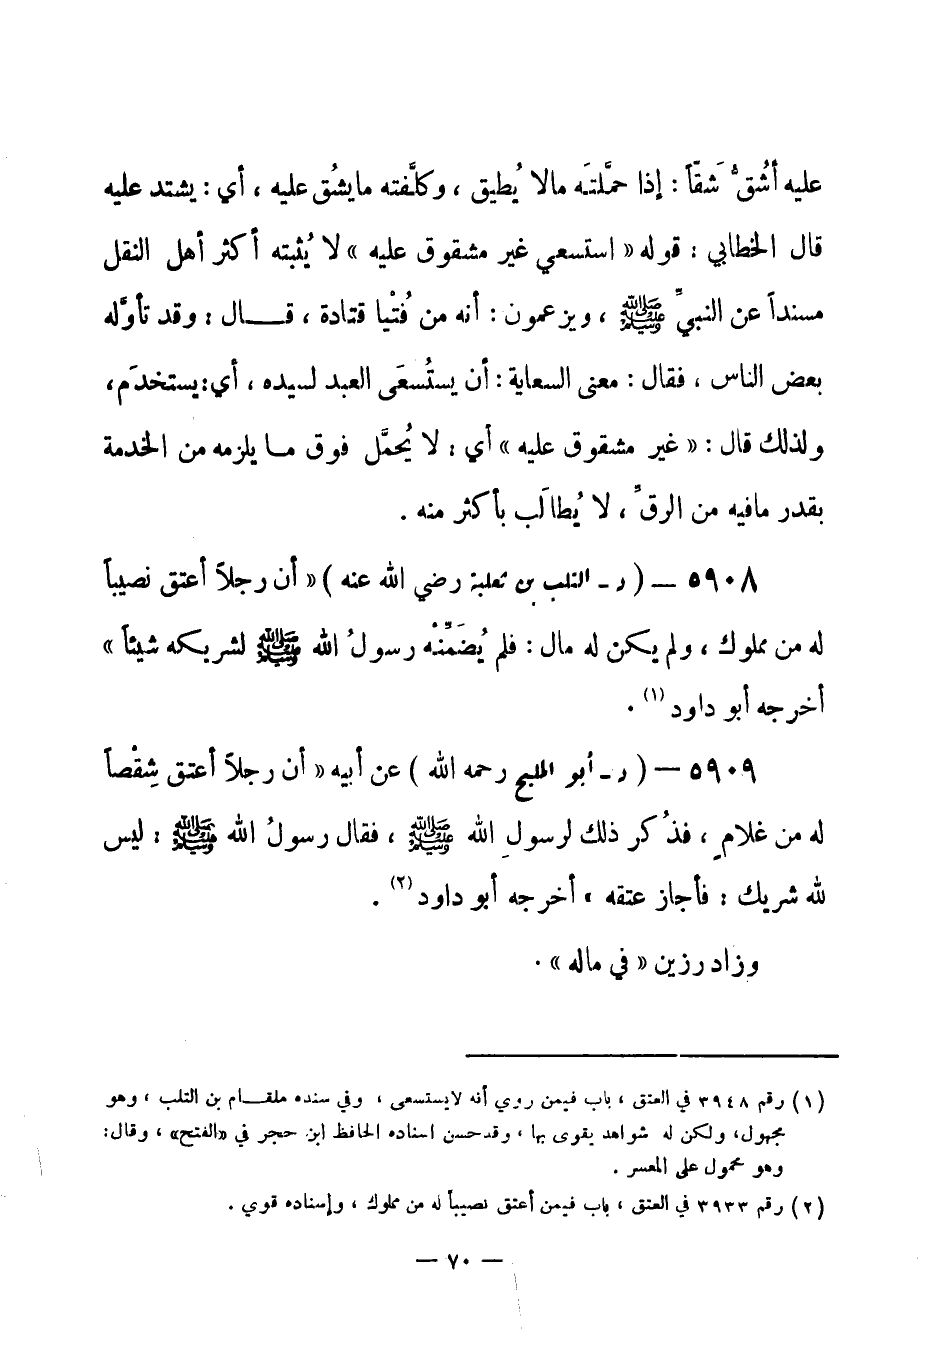 عليه أشُقُّ شَقّاً : إذا حمَّلتَه مالا يُطيق ، وكلَّفته مايشُق عليه ، أي : يشتد عليه
قال الخطابي : قوله « استسعي غير مشقوق عليه » لا يُثبته أكثر أهل النقل
مسنداً عن النبيِّ ﷺ ، ويزعمون : أنه من فُتْيا قتادة ، قـــال : وقد تأوَّله
بعض الناس ، فقال : معنى السعاية : أن يستُسعَى العبد لسيده ، أي : يستخدَم ،
ولذلك قال : « غير مشقوق عليه » أي : لا يُحمَّل فوق مـا يلزمه من الخدمة
بقدر مافيه من الرقِّ ، لا يُطالَب بأكثر منه .
٥٩٠٨ — ( د - التلب بن ثعلبة رضي الله عنه ) « أن رجلاً أعتق نصيباً
له من مملوك ، ولم يكن له مال : فلم يُضَمِّنْه رسولُ الله ﷺ لشريكه شيئاً »
أخرجه أبو داود (١) .
٥٩٠٩ — ( د - أبو المليح رحمه الله ) عن أبيه « أن رجلاً أعتق شِقْصاً
له من غلامٍ ، فذُكر ذلك لرسولِ الله ﷺ ، فقال رسولُ الله ﷺ : ليس
لله شريك : فأجاز عتقه » أخرجه أبو داود (٢) .
وزاد رزين « في ماله » .
(١) رقم ٣٩٤٨ في العتق ، باب فيمن روي أنه لايستسعى ، وفي سنده ملقـام بن التلب ، وهو
مجهول، ولكن له شواهد يقوى بها ، وقدحسن اسناده الحافظ ابن حجر في «الفتح» ، وقال:
وهو محمول على المعسر .
(٢) رقم ٣٩٣٣ في العتق ، باب فيمن أعتق نصيباً له من مملوك ، وإسناده قوي .
— ٧٠ —